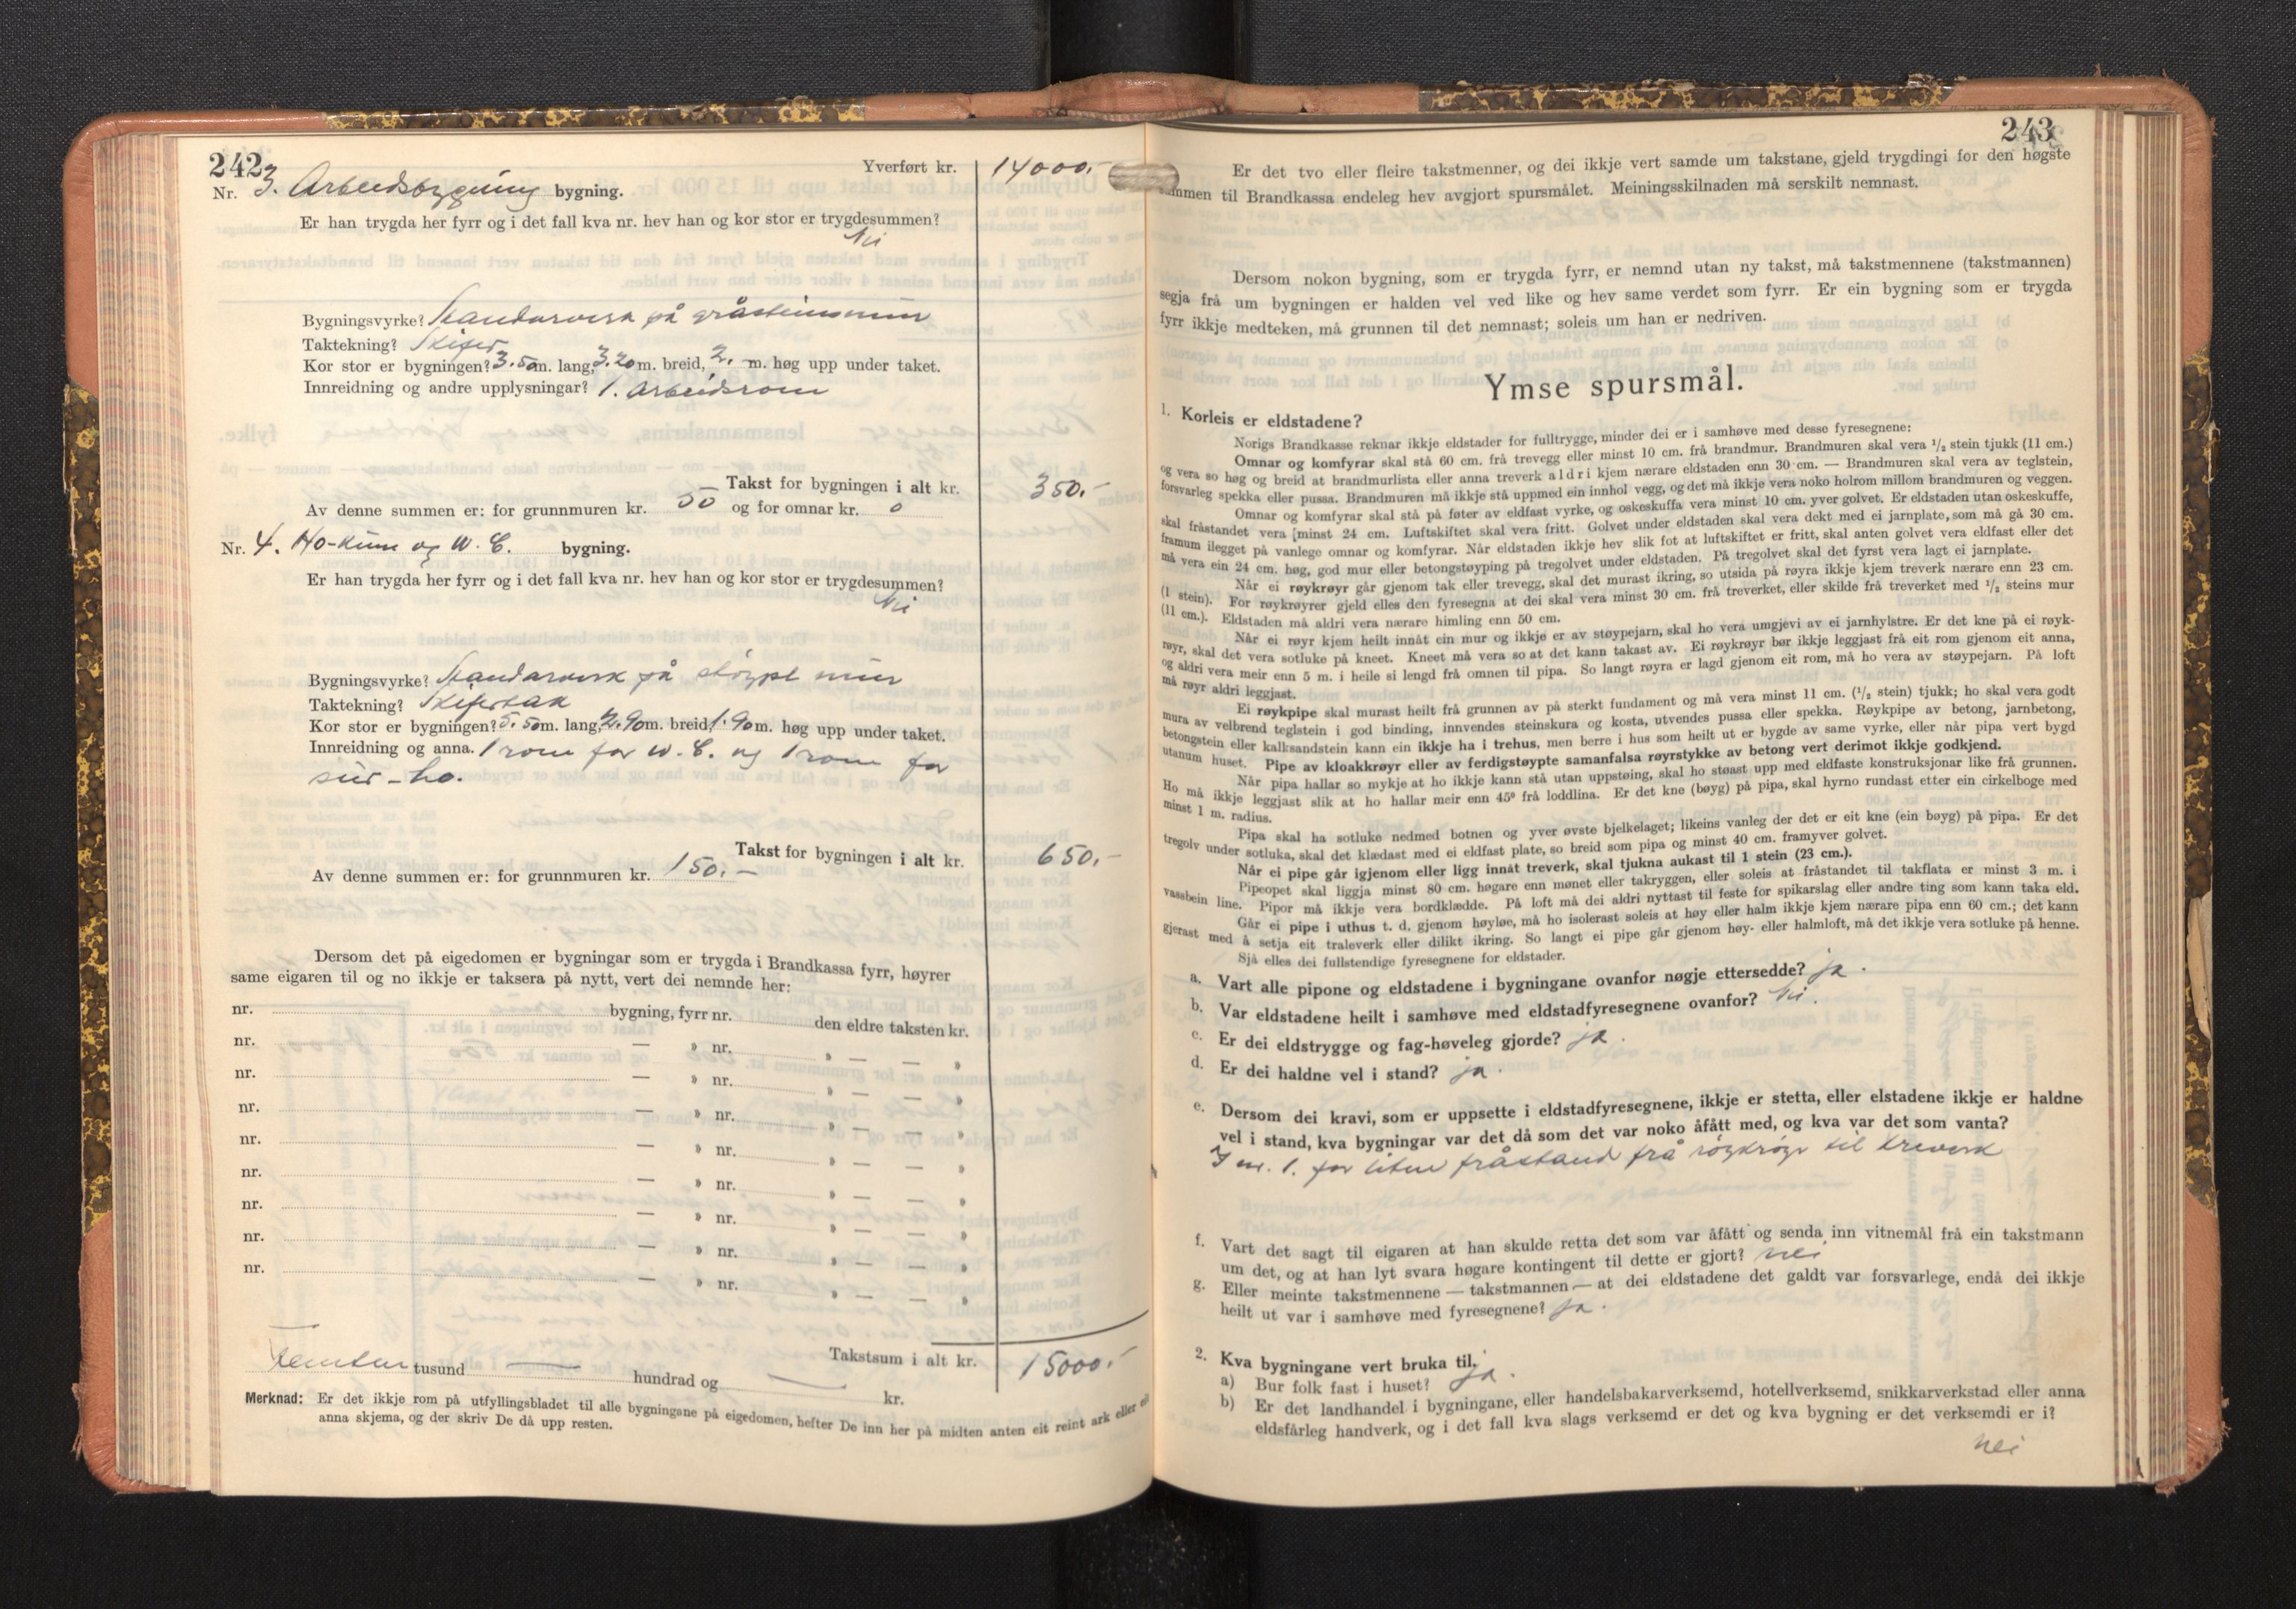 242
Yverført kr. 14000.-
Nr. 3. Arbeidsbygning bygning.
Er han trygda her fyrr og i det fall kva nr. hev han og kor stor er trygdesummen?
Nei
Bygningsvyrke? Standarverk på gråsteinsmur
Taktekning? Skifer
Kor stor er bygningen? 3.50 m. lang, 3.20 m. breid, 2.- m. høg upp under taket.
Innreidning og andre upplysningar? 1. Arbeidsrom
Takst for bygningen i alt kr. 350.-
Av denne summen er: for grunnmuren kr. 50 og for omnar kr. 0
Nr. 4. Ho-kum og W. C. bygning.
Er han trygda her fyrr og i det fall kva nr. hev han og kor stor er trygdesummen?
Nei
Bygningsvyrke? Standarverk på støypt mur
Taktekning? Skifertak
Kor stor er bygningen? 5.50 m. lang, 2.90 m. breid, 1.90 m. høg upp under taket.
Innreidning og anna. 1 rom for W. C. og 1 rom for
sur-ho.
Takst for bygningen i alt kr. 650.-
Av denne summen er: for grunnmuren kr. 150.-
Dersom det på eigedomen er bygningar som er trygda i Brandkassa fyrr, høyrer
same eigaren til og no ikkje er taksera på nytt, vert dei nemnde her:
nr. bygning, fyrr nr. den eldre taksten kr.
nr. — » nr. » — — »
nr. — » nr. » — — »
nr. — » nr. » — — »
nr. — » nr. » — — »
nr. — » nr. » — — »
nr. — » nr. » — — »
nr. — » nr. » — — »
nr. — » nr. » — — »
Takstsum i alt kr. 15000.-
Femtan tusund — hundrad og — kr.
Merknad: Er det ikkje rom på utfyllingsbladet til alle bygningane på eigedomen, hefter De inn her på midten anten eit reint ark eller eit
anna skjema, og der skriv De då upp resten.
243
Er det tvo eller fleire takstmenner, og dei ikkje vert samde um takstane, gjeld trygdingi for den høgste
summen til Brandkassa endeleg hev avgjort spursmålet. Meiningsskilnaden må serskilt nemnast.
Dersom nokon bygning, som er trygda fyrr, er nemnd utan ny takst, må takstmennene (takstmannen)
segja frå um bygningen er halden vel ved like og hev same verdet som fyrr. Er ein bygning som er trygda
fyrr ikkje medteken, må grunnen til det nemnast; soleis um han er nedriven.
Ymse spursmål.
1. Korleis er eldstadene?
Norigs Brandkasse reknar ikkje eldstader for fulltrygge, minder dei er i samhøve med desse fyresegnene:
Omnar og komfyrar skal stå 60 cm. frå trevegg eller minst 10 cm. frå brandmur. Brandmuren skal vera 1/2 stein tjukk (11 cm.)
og vera so høg og breid at brandmurlista eller anna treverk aldri kjem nærare eldstaden enn 30 cm. — Brandmuren skal vera av teglstein,
forsvarleg spekka eller pussa. Brandmuren må ikkje stå uppmed ein innhol vegg, og det må ikkje vera noko holrom millom brandmuren og veggen.
Omnar og komfyrar skal stå på føter av eldfast vyrke, og oskeskuffa vera minst 10 cm. yver golvet. Er eldstaden utan oskeskuffe,
skal fråstandet vera minst 24 cm. Luftskiftet skal vera fritt. Golvet under eldstaden skal vera dekt med ei jarnplate, som må gå 30 cm.
framum ilegget på vanlege omnar og komfyrar. Når eldstaden ikkje hev slik fot at luftskiftet er fritt, skal anten golvet vera eldfast eller det
må vera ein 24 cm. høg, god mur eller betongstøyping på tregolvet under eldstaden. På tregolvet skal det fyrst vera lagt ei jarnplate.
Når ei røykrøyr går gjenom tak eller trevegg, skal det murast ikring, so utsida på røyra ikkje kjem treverk nærare enn 23 cm.
(1 stein). For røykrøyrer gjeld elles den fyresegna at dei skal vera minst 30 cm. frå treverket, eller skilde frå treverket med 1/2 steins mur
(11 cm.). Eldstaden må aldri vera nærare himling enn 50 cm.
Når ei røyr kjem heilt innåt ein mur og ikkje er av støypejarn, skal ho vera umgjevi av ei jarnhylstre. Er det kne på ei røyk-
røyr, skal det vera sotluke på kneet. Kneet må vera so at det kann takast av. Ei røykrøyr bør ikkje leggjast frå eit rom gjenom eit anna,
og aldri vera meir enn 5 m. i heile si lengd frå omnen til pipa. So langt røyra er lagd gjenom eit rom, må ho vera av støypejarn. På loft
må røyr aldri leggjast.
Ei røykpipe skal murast heilt frå grunnen av på sterkt fundament og må vera minst 11 cm. (1/2 stein) tjukk; ho skal vera godt
mura av velbrend teglstein i god binding, innvendes steinskura og kosta, utvendes pussa eller spekka. Røykpipe av betong, jarnbetong,
betongstein eller kalksandstein kann ein ikkje ha i trehus, men berre i hus som heilt ut er bygde av same vyrke, eller når pipa vert bygd
utanum huset. Pipe av kloakkrøyr eller av ferdigstøypte samanfalsa røyrstykke av betong vert derimot ikkje godkjend.
Når pipa hallar so mykje at ho ikkje kann stå utan uppstøing, skal ho støast upp med eldfaste konstruksjonar like frå grunnen.
Ho må ikkje leggjast slik at ho hallar meir enn 45° frå loddlina. Er det kne (bøyg) på pipa, skal hyrno rundast etter ein cirkelboge med
minst 1 m. radius.
Pipa skal ha sotluke nedmed botnen og yver øvste bjelkelaget; likeins vanleg der det er eit kne (ein bøyg) på pipa. Er det
tregolv under sotluka, skal det klædast med ei eldfast plate, so breid som pipa og minst 40 cm. framyver golvet.
Når ei pipe går igjenom eller ligg innåt treverk, skal tjukna aukast til 1 stein (23 cm.).
Pipeopet skal liggja minst 80 cm. høgare enn mønet eller takryggen, eller soleis at fråstandet til takflata er minst 3 m. i
vassbein line. Pipor må ikkje vera bordklædde. På loft må dei aldri nyttast til feste for spikarslag eller andre ting som kann taka eld.
Går ei pipe i uthus t. d. gjenom høyløe, må ho isolerast soleis at høy eller halm ikkje kjem nærare pipa enn 60 cm.; det kann
gjerast med å setja eit traleverk eller dilikt ikring. So langt ei pipe går gjenom høy- eller halmloft, må det ikkje vera sotluke på henne.
Sjå elles dei fullstendige fyresegnene for eldstader.
a. Vart alle pipone og eldstadene i bygningane ovanfor nøgje ettersedde? ja.
b. Var eldstadene heilt i samhøve med eldstadfyresegnene ovanfor? Nei.
c. Er dei eldstrygge og fag-høveleg gjorde? ja.
d. Er dei haldne vel i stand? ja.
e. Dersom dei kravi, som er uppsette i eldstadfyresegnene, ikkje er stetta, eller elstadene ikkje er haldne
vel i stand, kva bygningar var det då som det var noko åfått med, og kva var det som vanta?
I nr. 1. for liten fråstand frå røykrøyr til treverk
f. Vart det sagt til eigaren at han skulde retta det som var åfått og senda inn vitnemål frå ein takstmann
um det, og at han lyt svara høgare kontingent til dette er gjort? nei
g. Eller meinte takstmennene — takstmannen — at dei eldstadene det galdt var forsvarlege, endå dei ikkje
heilt ut var i samhøve med fyresegnene? ja.
2. Kva bygningane vert bruka til.
a) Bur folk fast i huset? ja.
b) Er det landhandel i bygningane, eller handelsbakarverksemd, hotellverksemd, snikkarverkstad eller anna
eldsfårleg handverk, og i det fall kva slags verksemd er det og kva bygning er det verksemdi er i?
nei